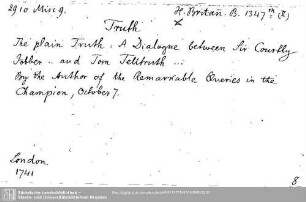 2910 Misc 9.
H. Britan. B. 1347 m (x)
Truth
x
The plain Truth. A Dialogue between Sir Courtly
Jobber .. and Tom Telltruth ...
By the Author of the Remarkable Queries in the
Champion, October 7.
London
1741
8
Sächsische Landesbibliothek -
Staats- und Universitätsbibliothek Dresden